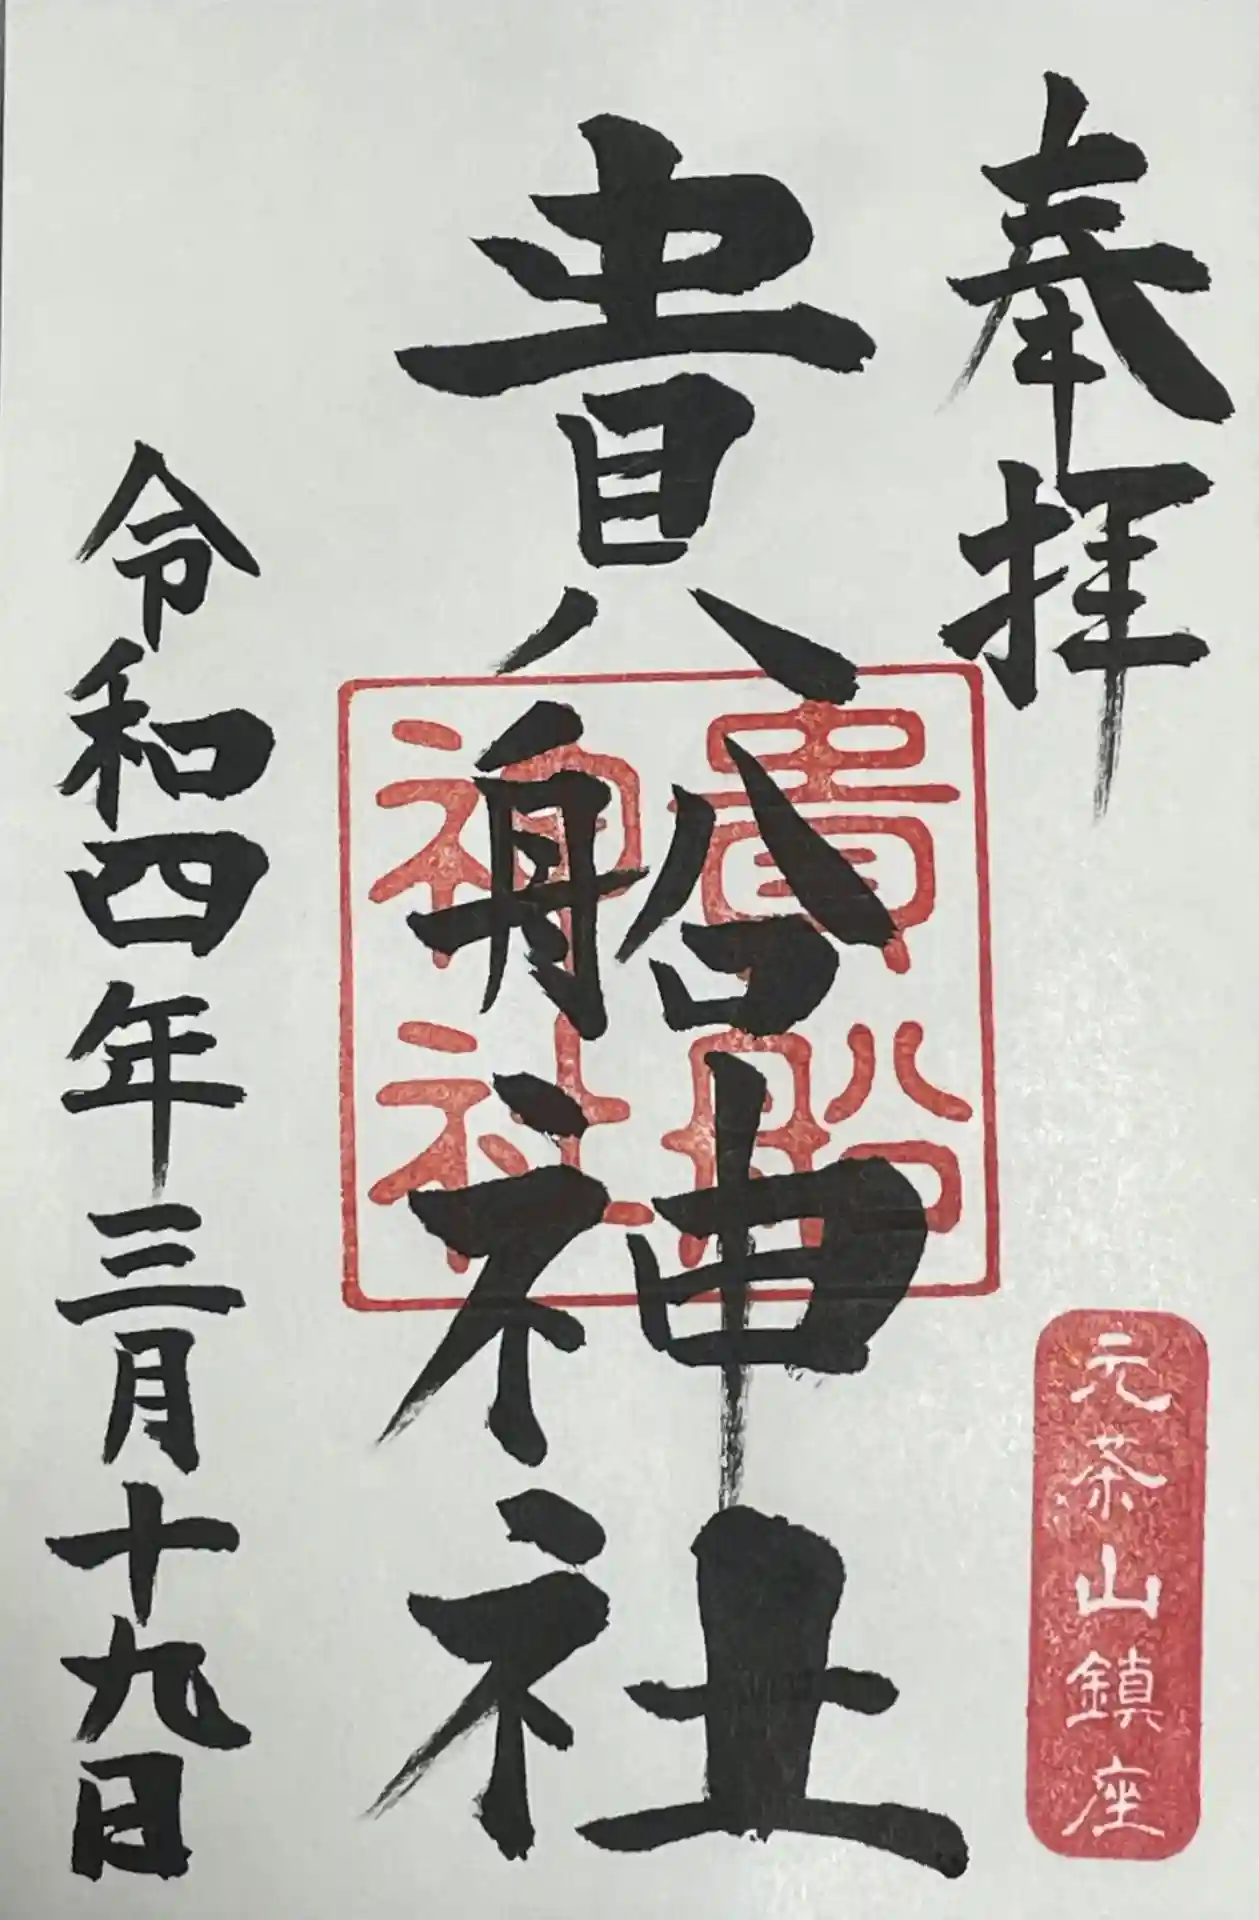 奉拝
元茶山鎮座
貴船神社
貴船
神社
令和四年三月十九日